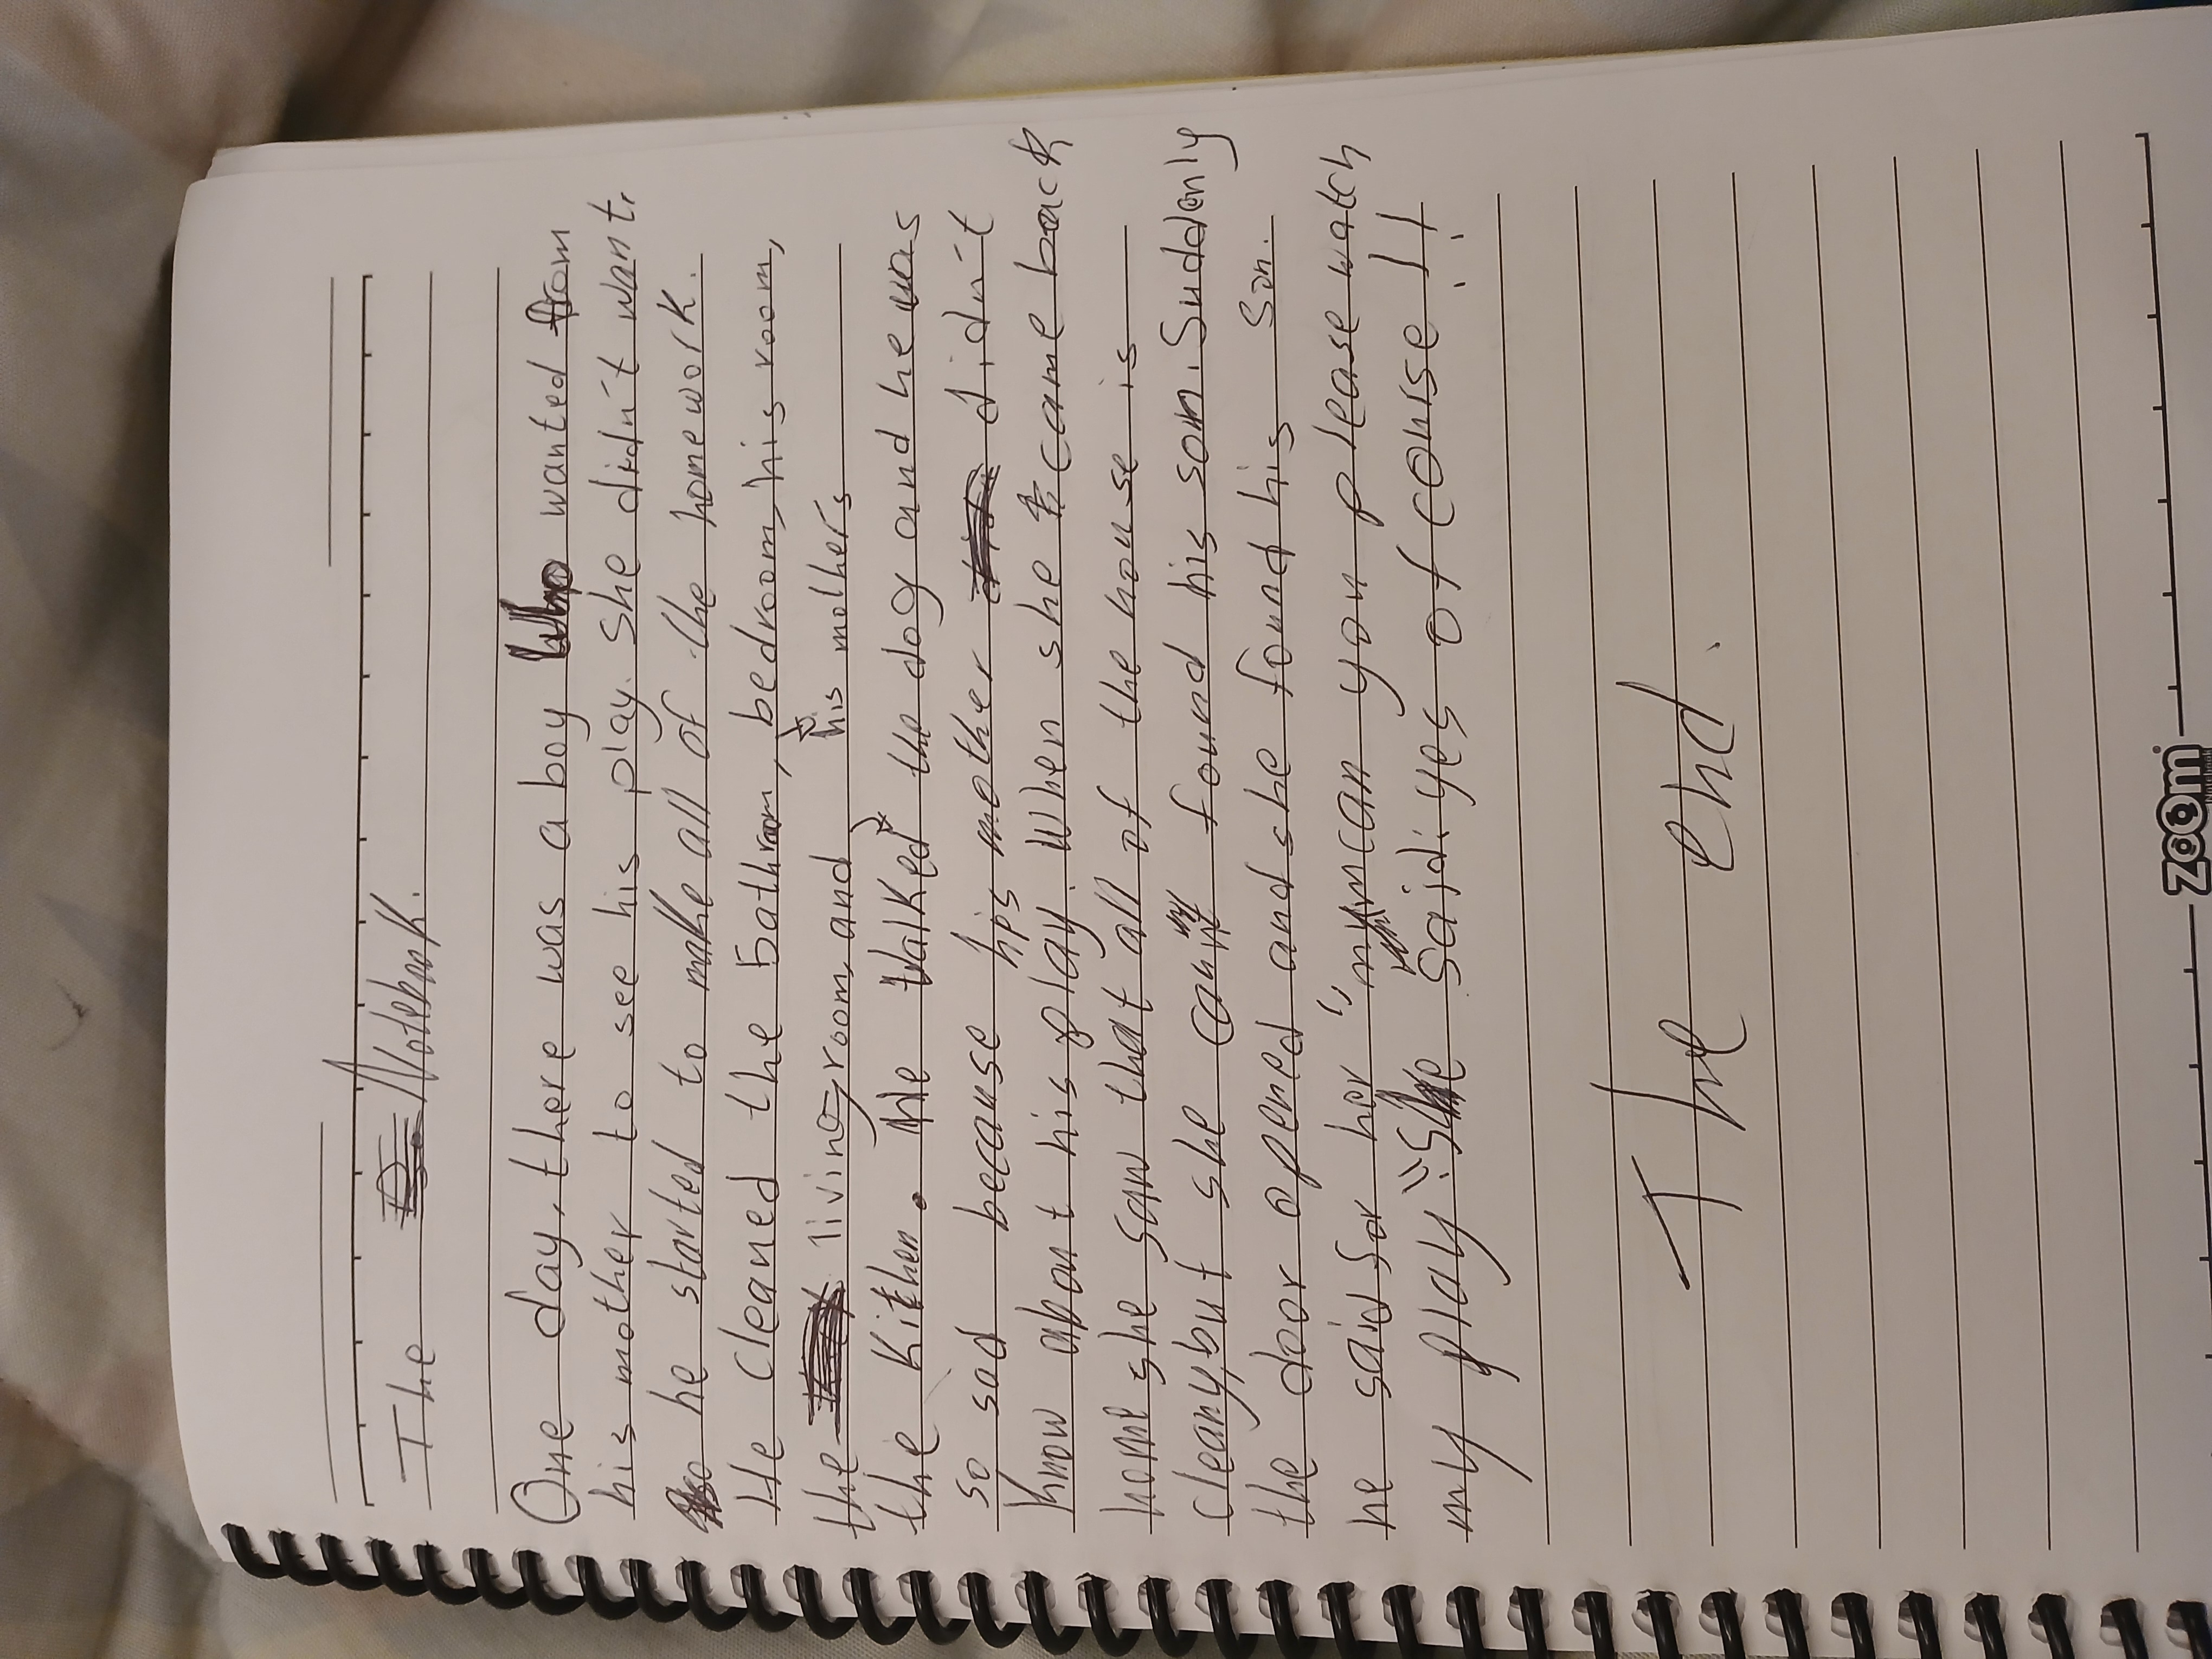 The Notebook.
One day, there was a boy wanted from
his mother to see his play. She didn't want.
so he started to make all of the homework.
He cleaned the bathroom, bedroom, his room,
the living room, and his mother's
the kithen. He walked the dog and he was
so sad because his mother didn't
know about his play. When she came back
home she saw that all of the house is
cleany, but she can't found his son. Suddenly
the door opened and she found his son.
he said for her "mymcan you please watch
my play" She said: yes of course!!
The end.
zoom
Notebook